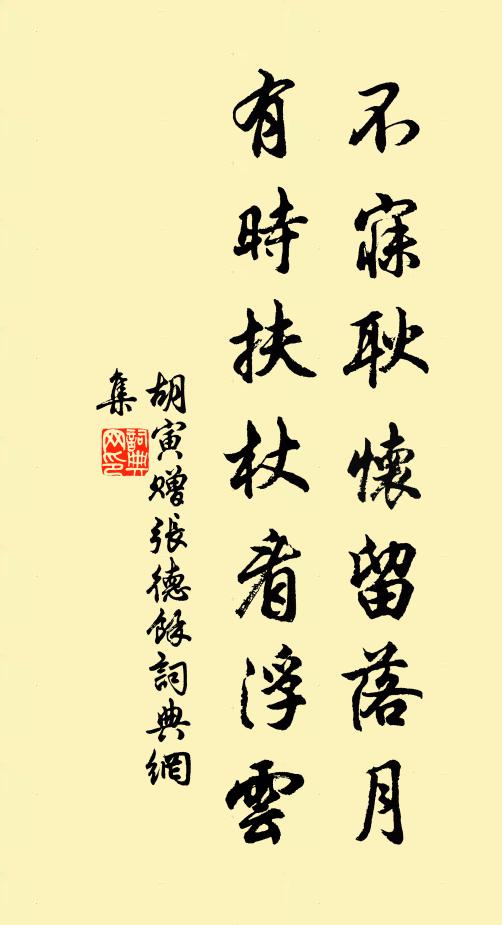 不寐耿懷留落月
有時扶杖看浮雲
胡寅贈張德餘詞典網
集
詞典
网印